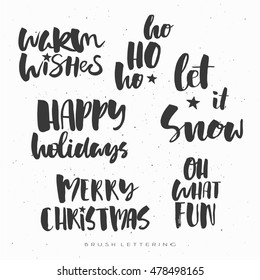 warm
wishes
ho
HO
ho
let
it
Snow
HAPPY
holidays
MERRY
CHRISTMAS
OH
WHAT
FUN
BRUSH LETTERING
shutterstock.com · 478498165